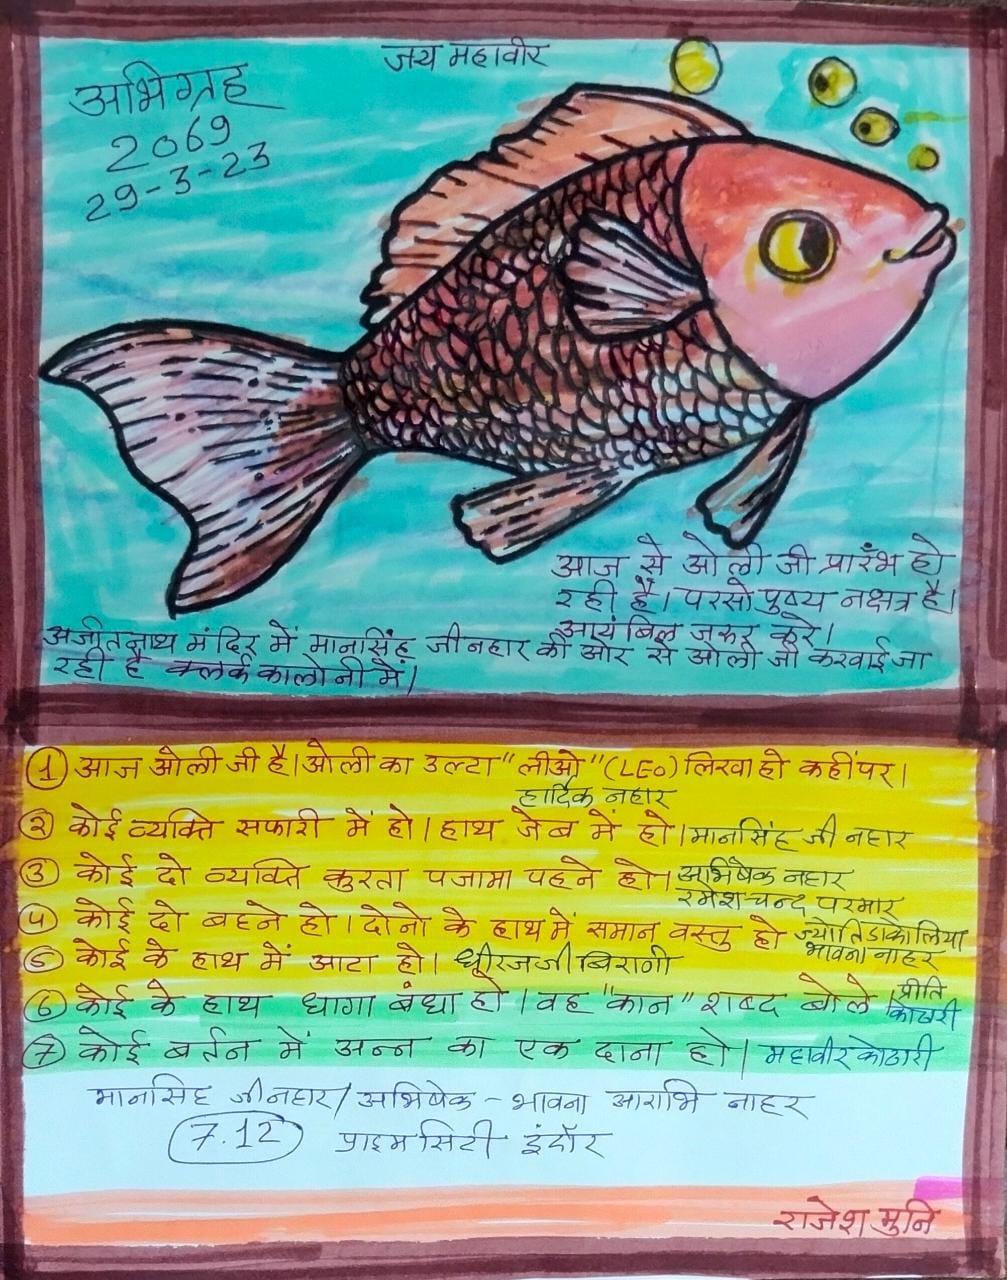 जय महावीर
अभिग्रह
2069
29-3-23
आज से ओली जी प्रारंभ हो
रही है। परसो पुष्य नक्षत्र है।
आयंबिल जरूर करे।
अजीतनाथ मंदिर में मानसिंह जी नहार की ओर से ओली जी करवाई जा
रही है क्लर्क कालोनी में।
① आज ओली जी है। ओली का उल्टा "लीओ" (LEO) लिखा हो कहीं पर।
हार्दिक नहार
② कोई व्यक्ति सफारी में हो। हाथ जेब में हो। मानसिंह जी नहार
③ कोई दो व्यक्ति कुरता पजामा पहने हो। अभिषेक नहार
रमेशचन्द परमार
④ कोई दो बहने हो। दोनो के हाथ में समान वस्तु हो ज्योति डाकोलिया
भावना नाहर
⑤ कोई के हाथ में आटा हो। धीरजजी बिरानी
⑥ कोई के हाथ धागा बंधा हो। वह "कान" शब्द बोले। प्रीति
कोठारी
⑦ कोई बर्तन में अन्न का एक दाना हो। महावीर कोठारी
मानसिंह जी नहार/अभिषेक - भावना आराभि नाहर
7.12 प्राइम सिटी इंदौर
राजेश मुनि